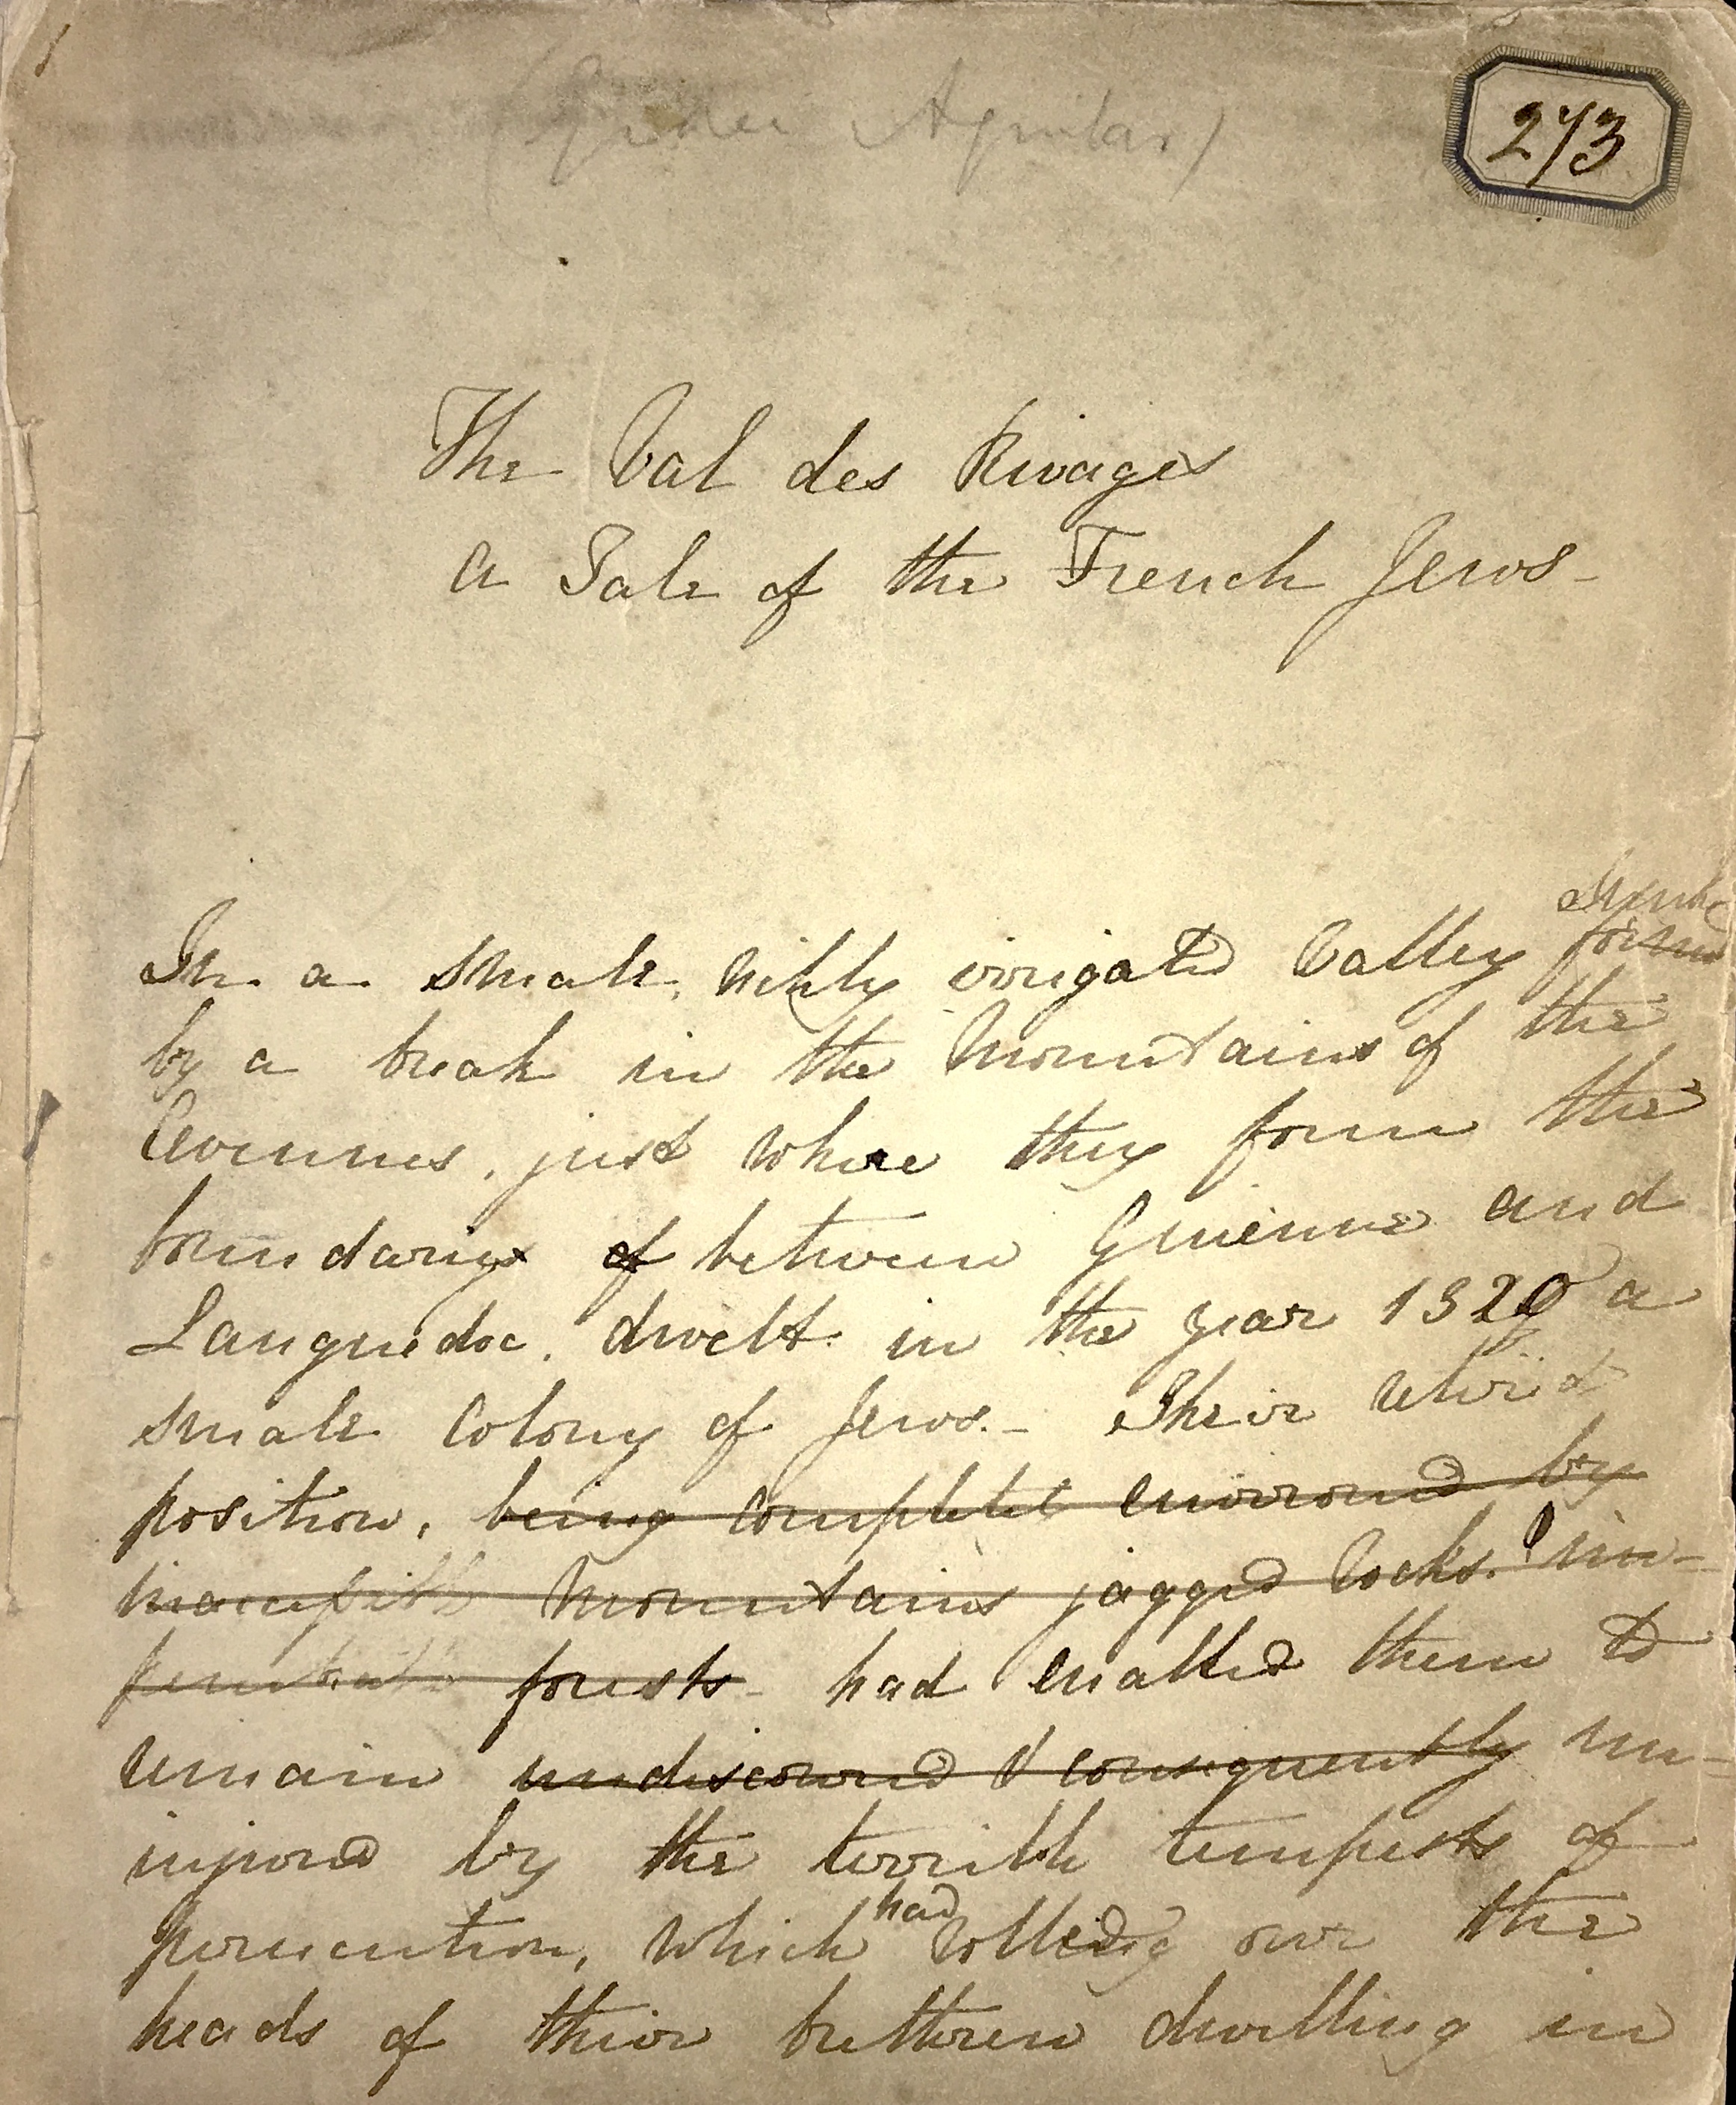 (Grace Aguilar)
273
The Val des Rivages
A Tale of the French Jews-
In a small, richly irrigated Valley formed
by a break in the Mountains of the
Cevennes, just where they form the
boundary of between Guienne and
Languedoc, dwelt in the year 1320 a
small Colony of Jews.- Their retired
position, being completel environed by
Mountains jagged Rocks. & im-
penetrable forests- had enabled them to
remain undiscovered & consequently un-
injured by the terrible tempests of
persecution, which had rolled over the
heads of their brethren dwelling in